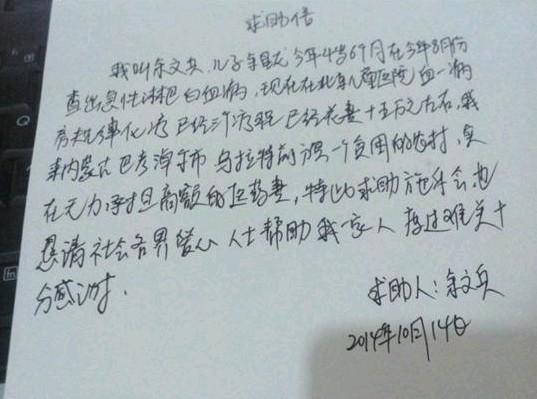 求助信
我叫余文兵,儿子余星龙今年4岁6个月在今年8月份
查出急性淋巴白血病,现在在北京儿童医院血一病
房规律化疗已经三个疗程已经花费十五万元左右,我
来内蒙古巴彦淖尔市乌拉特前旗一个贫困的农村,实
在无力承担高额的医药费,特此求助于社会,也
恳请社会各界爱心人士帮助我家人度过难关十
分感谢.
求助人:余文兵
2014年10月14日